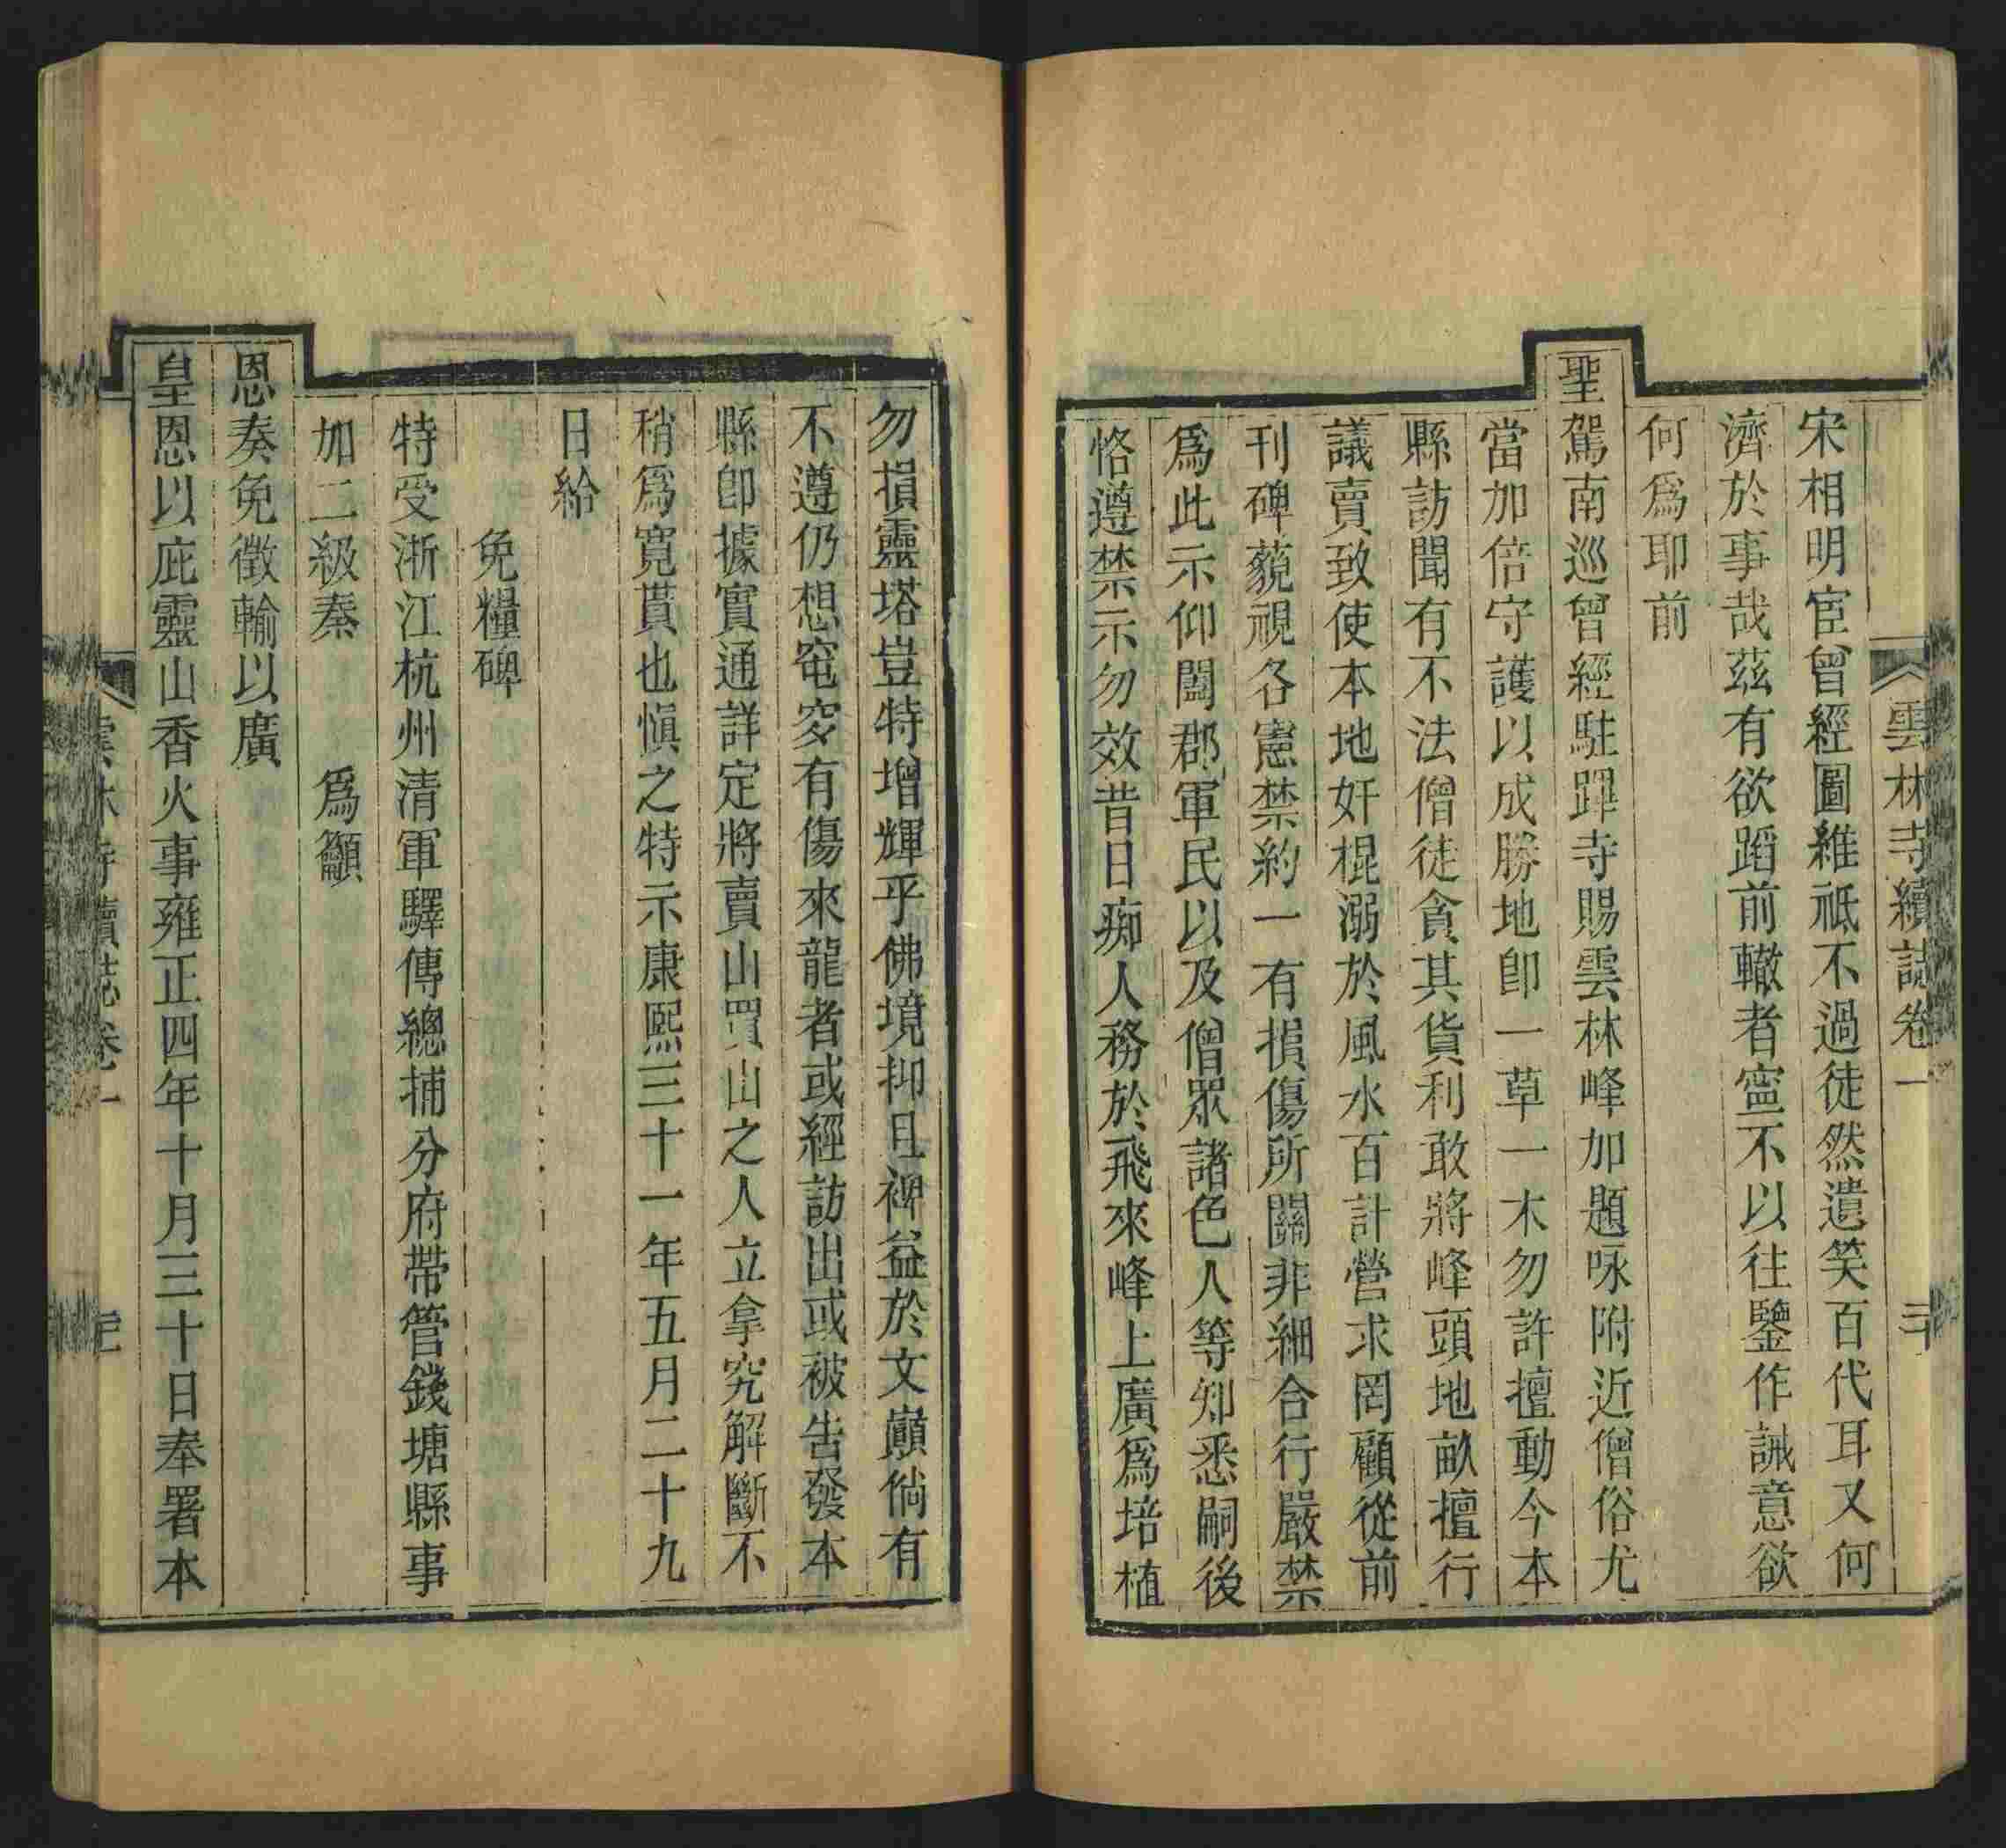 雲林寺續誌卷一　三十
宋相明宦曾經圖維祇不過徒然遺笑百代耳又何
濟於事哉茲有欲蹈前轍者寧不以往鑒作誡意欲
何爲耶前
聖駕南巡曾經駐蹕寺賜雲林峰加題咏附近僧俗尤
當加倍守護以成勝地卽一草一木勿許擅動今本
縣訪聞有不法僧徒貪其貨利敢將峰頭地畝擅行
議賣致使本地奸棍溺於風水百計營求罔顧從前
刊碑藐視各憲禁約一有損傷所關非細合行嚴禁
爲此示仰闔郡軍民以及僧眾諸色人等知悉嗣後
恪遵禁示勿效昔日痴人務於飛來峰上廣爲培植
勿損靈塔豈特增輝乎佛境抑且裨益於文巔倘有
不遵仍想窀穸有傷來龍者或經訪出或被告發本
縣卽據實通詳定將賣山買山之人立拿究解斷不
稍爲寬貰也愼之特示康熙三十一年五月二十九
日給
免糧碑
特受浙江杭州清軍驛傳總捕分府帶管錢塘縣事
加二級秦　爲籲
恩奏免徵輸以廣
皇恩以庇靈山香火事雍正四年十月三十日奉署本
雲林寺續誌卷一